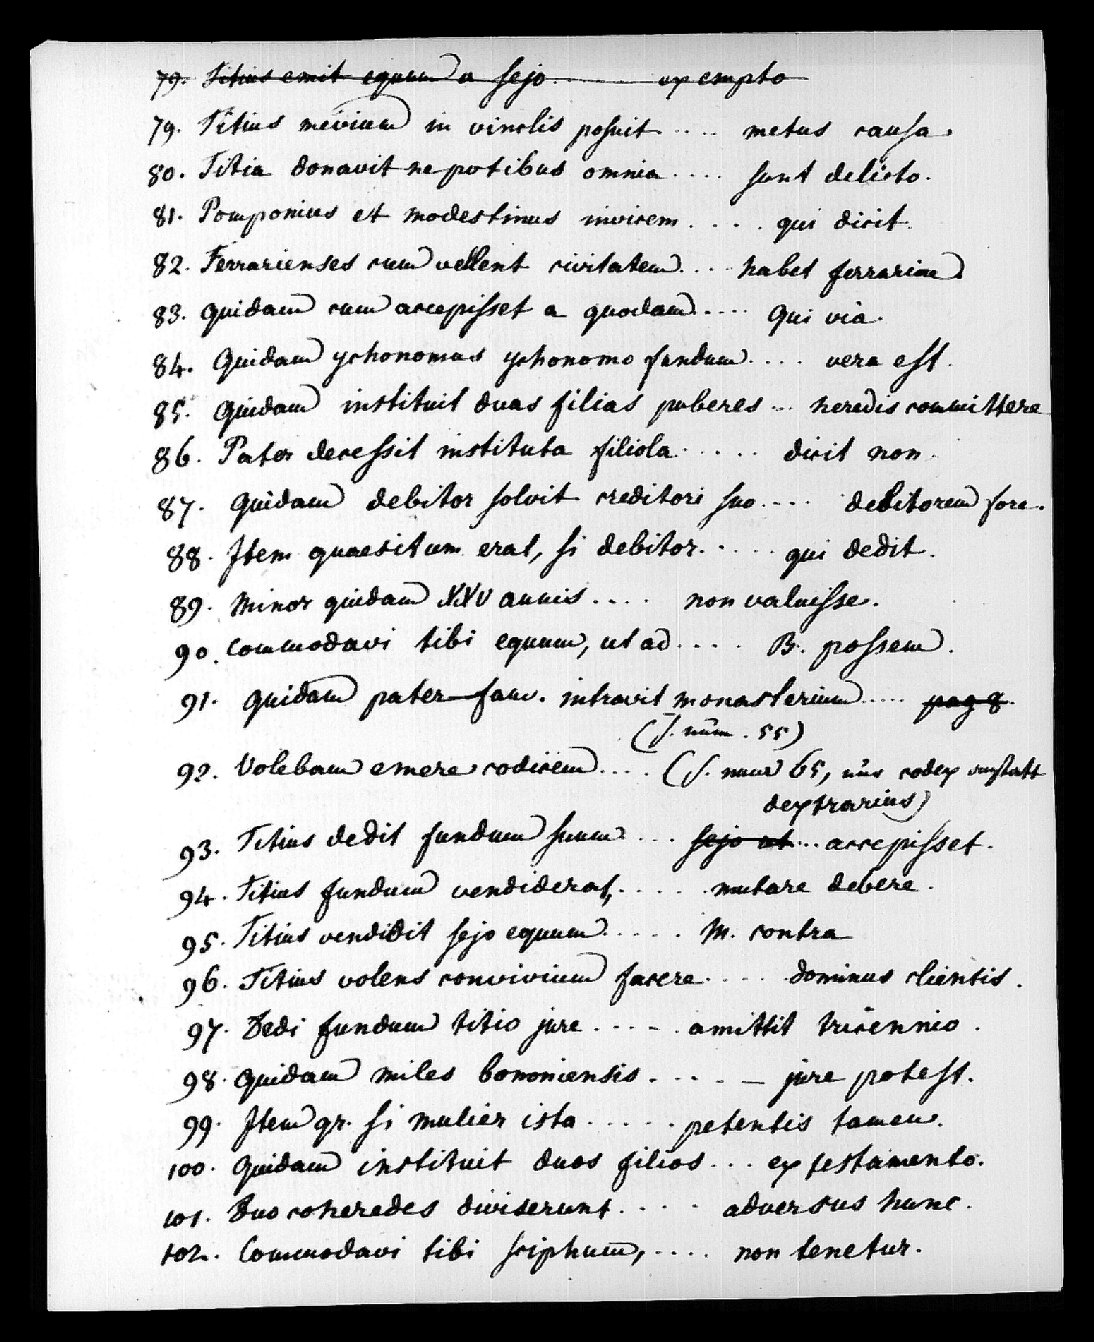 79. Titius emit equum a sejo ........ ex empto
79. Titius mevium in vinclis posuit .... metus causa.
80. Titia donavit nepotibus omnia .... sunt delicto.
81. Pomponius et modestinus invicem .... qui dicit.
82. Ferrarienses cum vellent civitatem .... habet ferrariae.
83. quidam cum accepisset a quodam .... qui via.
84. Quidam ychonomus ychonomo fundum .... vera est.
85. quidam instituit duas filias puberes ... heredis committere
86. Pater decessit instituta filiola ..... dicit non.
87. Quidam debitor solvit creditori suo .... debitorem fore.
88. Item quaesitum erat, si debitor ..... qui dedit.
89. Minor quidam XXV annis .... non valuisse.
90. Commodavi tibi equum, ut ad .... B. possem.
91. quidam pater fam. intravit monasterium ..... pag 8.
(J. num. 55)
92. Volebam emere codicem .... (J. num 65, codex
dextrarius)
93. Titius dedit fundum suum ... sejo ut ... accepisset.
94. Titius fundum vendiderat, ..... mutare debere.
95. Titius vendidit sejo equum ..... M. contra
96. Titius volens convivium facere .... dominus clientis.
97. Dedi fundum titio jure ..... amittit tricennio.
98. quidam miles bononiensis ..... jure potest.
99. Item qr. si mulier ista ..... petentis tamen.
100. Quidam instituit duos filios ... ex testamento.
101. Duo coheredes diviserunt .... adversus hunc.
102. Commodavi tibi sciphum, .... non tenetur.